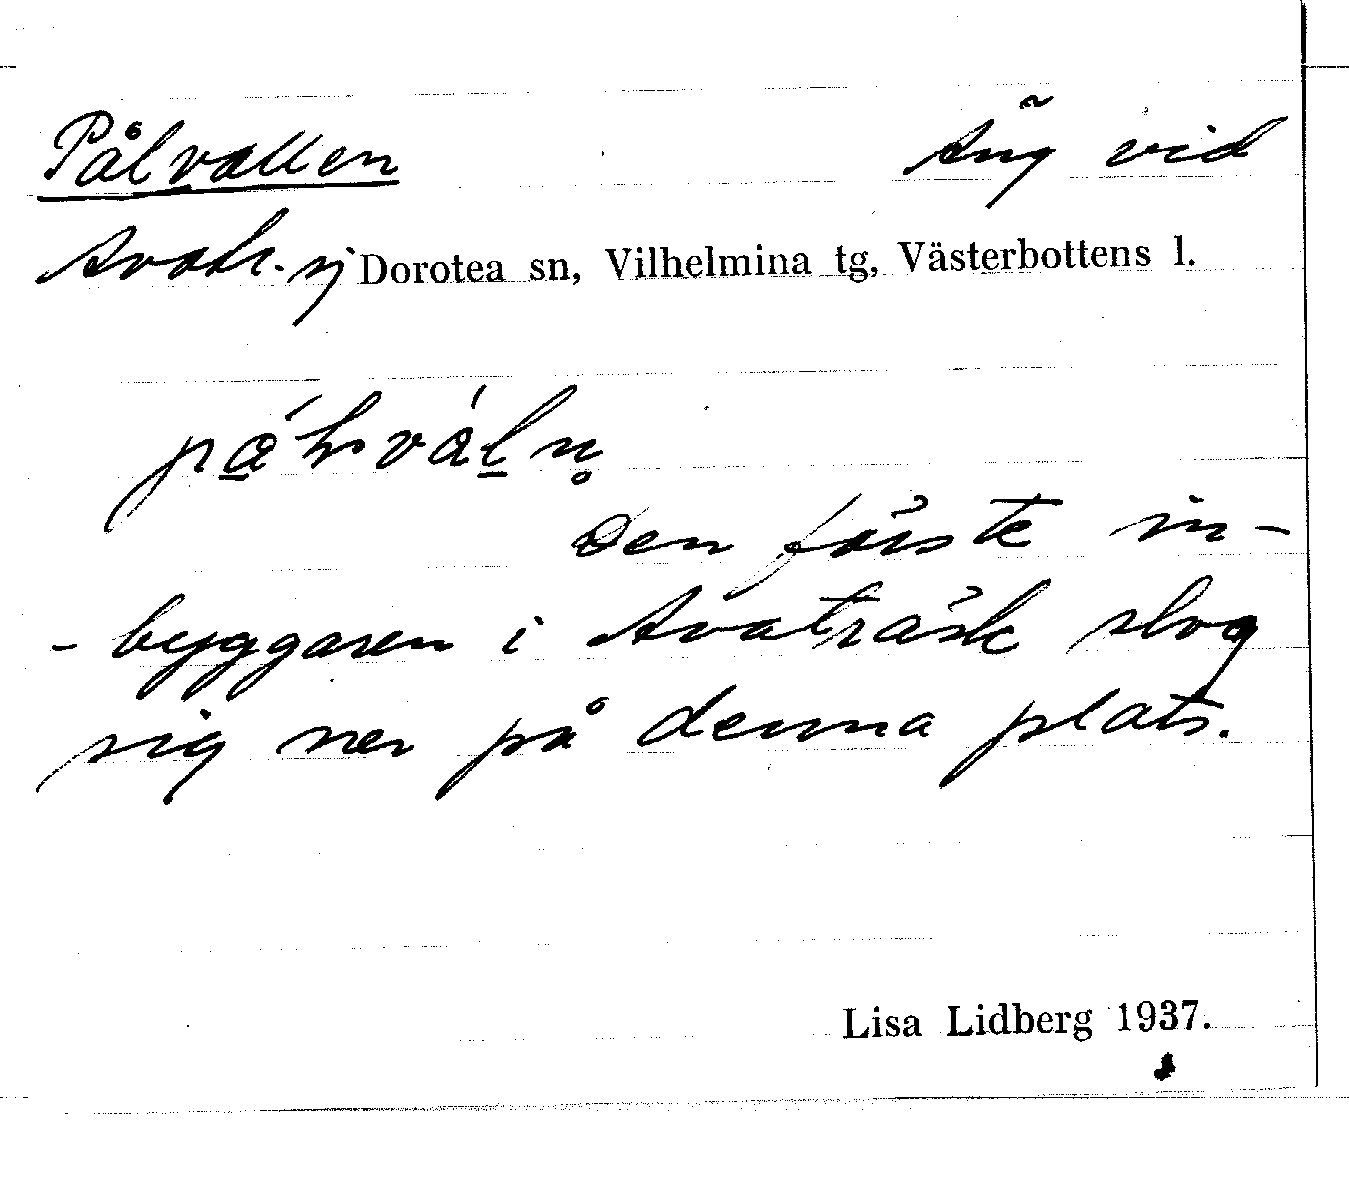 Pålvallen Äng vid
Avatr. sj Dorotea sn, Vilhelmina tg, Västerbottens l.
Den förste in-
- byggaren i Avaträsk slog
sig ner på denna plats.
Lisa Lidberg 1937.